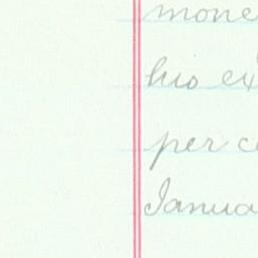 mone
his ex
per c
Janua